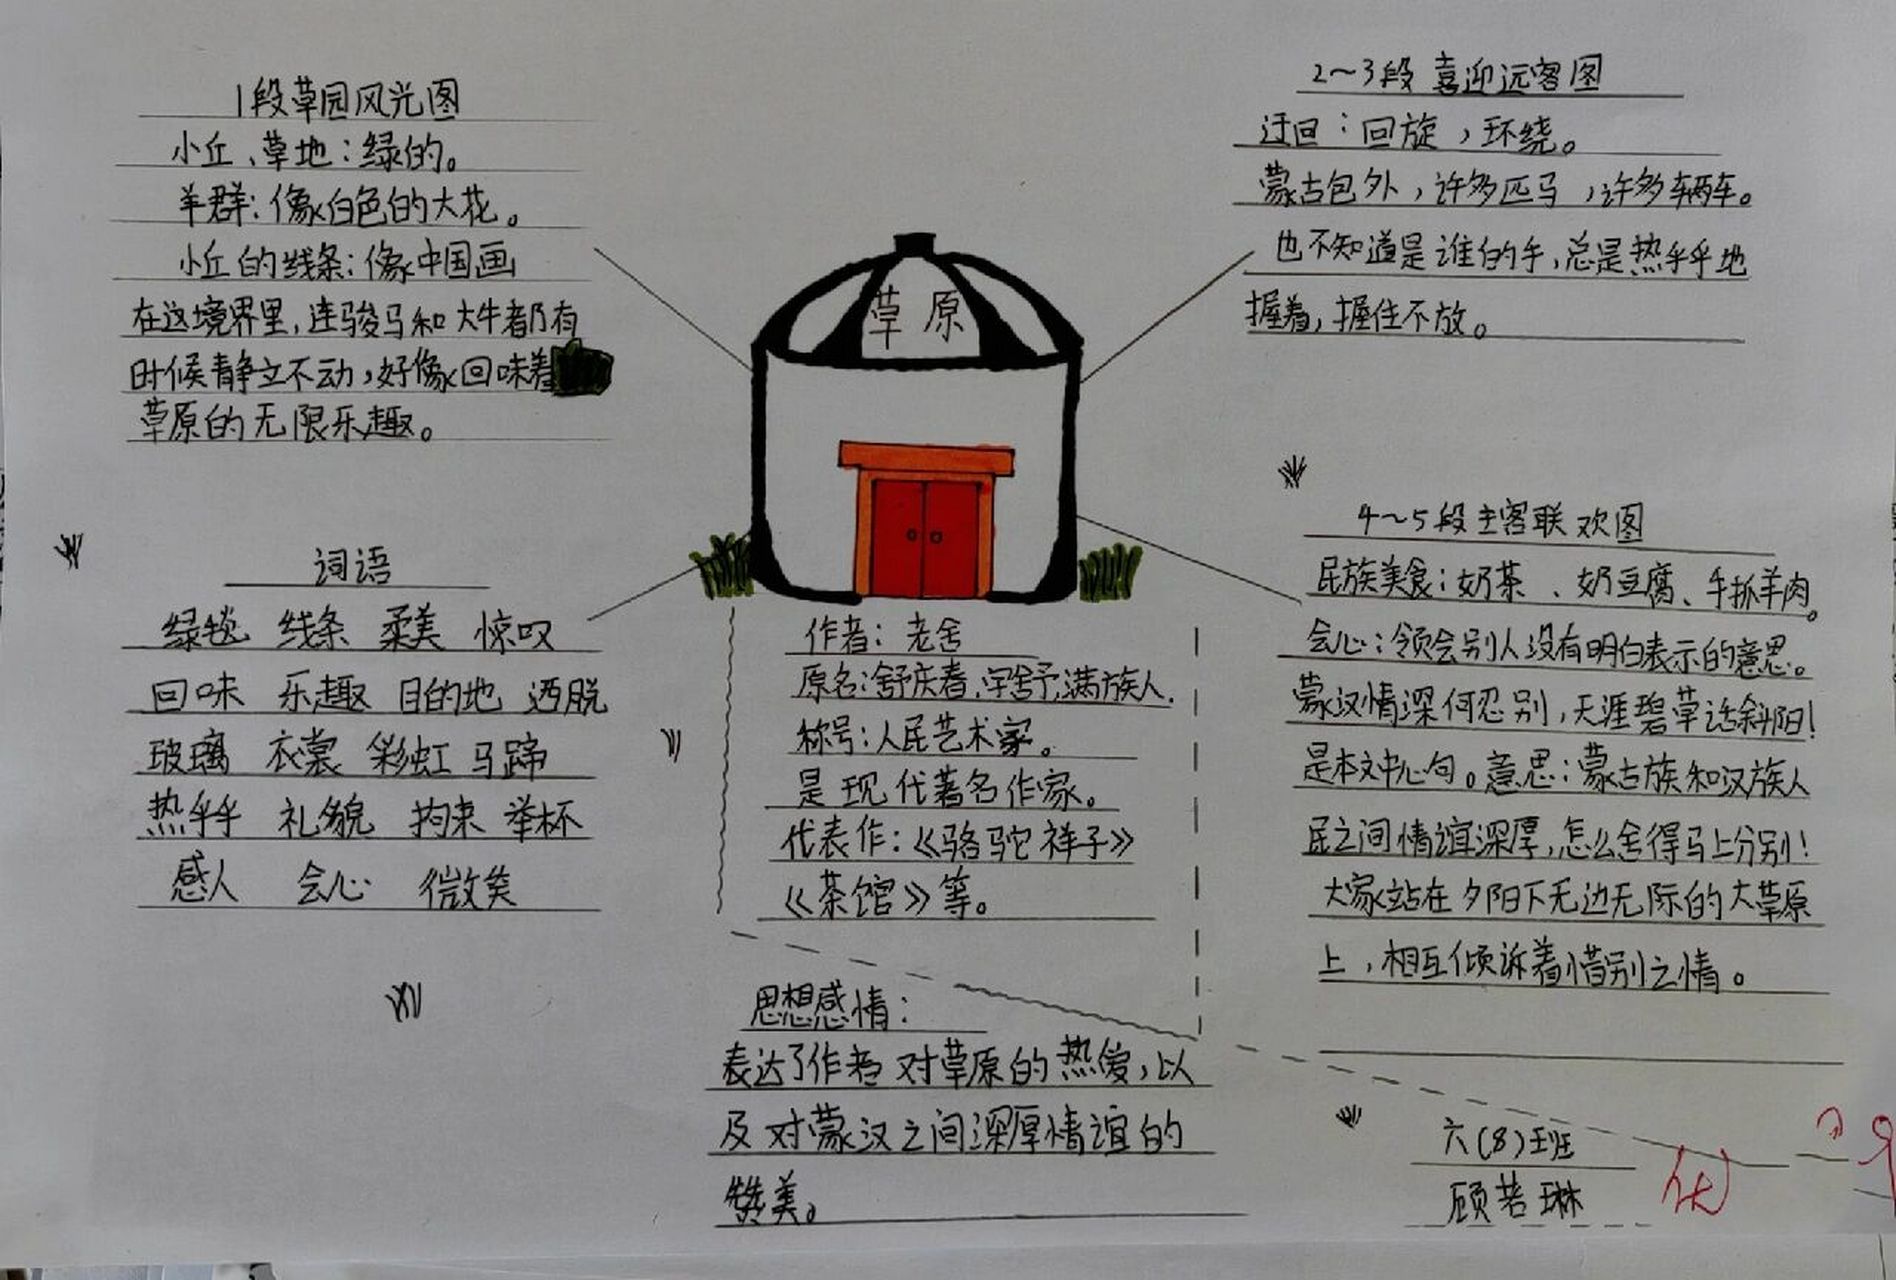 1段草园风光图
小丘、草地：绿的。
羊群：像白色的大花。
小丘的线条：像中国画
在这境界里，连骏马和大牛都有
时候静立不动，好像回味着
草原的无限乐趣。
词语
绿毯 线条 柔美 惊叹
回味 乐趣 目的地 洒脱
玻璃 衣裳 彩虹 马蹄
热乎乎 礼貌 拘束 举杯
感人 会心 微笑
草原
作者：老舍
原名：舒庆春，字舍予，满族人.
称号：人民艺术家。
是现代著名作家。
代表作：《骆驼祥子》
《茶馆》等。
思想感情：
表达了作者对草原的热爱，以
及对蒙汉之间深厚情谊的
赞美。
2～3段 喜迎远客图
迂回：回旋，环绕。
蒙古包外，许多匹马，许多辆车。
也不知道是谁的手，总是热乎乎地
握着，握住不放。
4～5段主客联欢图
民族美食：奶茶、奶豆腐、手抓羊肉。
会心：领会别人没有明白表示的意思。
蒙汉情深何忍别，天涯碧草话斜阳！
是本文中心句。意思：蒙古族和汉族人
民之间情谊深厚，怎么舍得马上分别！
大家站在夕阳下无边无际的大草原
上，相互倾诉着惜别之情。
六(8)班
顾若琳
优